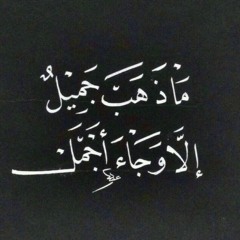 مَا ذَهَبَ جَمِيْلٌ
إلَّا وَجَاءَ أَجْمَلَ